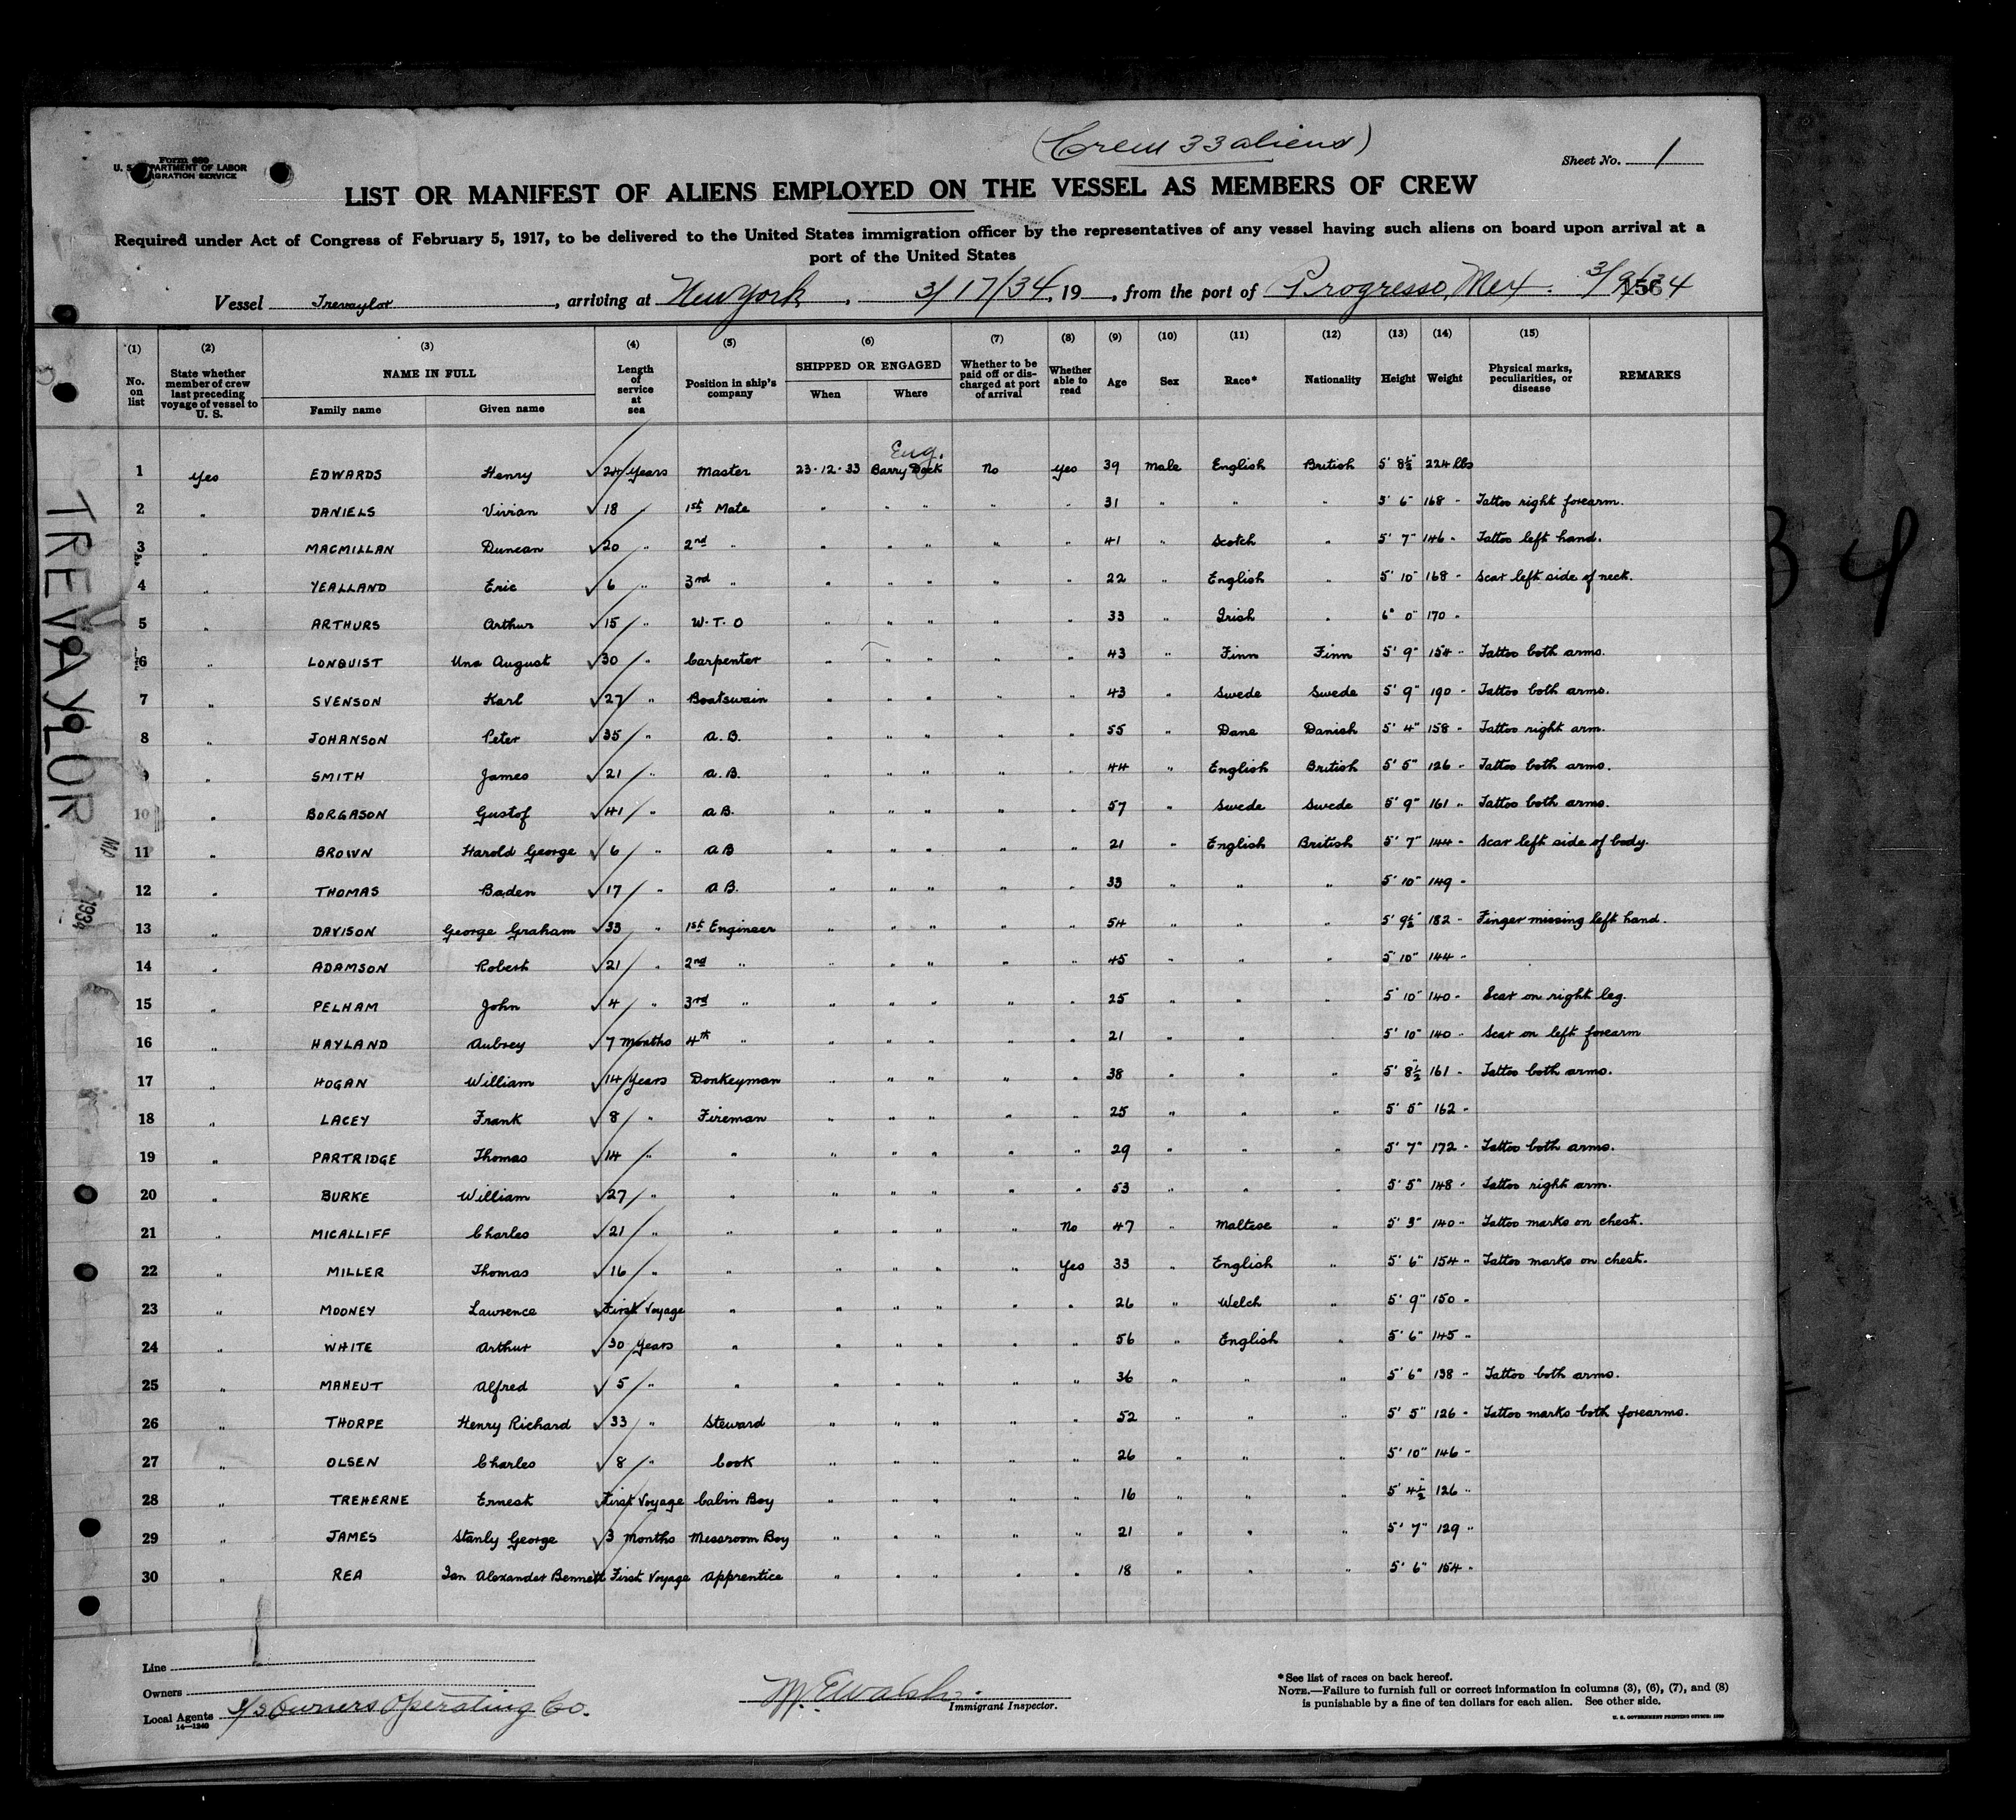 (Crew 33 aliens)
Form 680
U. S. DEPARTMENT OF LABOR
IMMIGRATION SERVICE
Sheet No. 1
LIST OR MANIFEST OF ALIENS EMPLOYED ON THE VESSEL AS MEMBERS OF CREW
Required under Act of Congress of February 5, 1917, to be delivered to the United States immigration officer by the representatives of any vessel having such aliens on board upon arrival at a
port of the United States
Vessel Trevaylor, arriving at New York, 3/17/34, 19, from the port of Progresso, Mex. 3/9/34
(1) (2) (3) (4) (5) (6) (7) (8) (9) (10) (11) (12) (13) (14) (15)
No. on list
State whether member of crew last preceding voyage of vessel to U. S.
NAME IN FULL
Family name Given name
Length of service at sea
Position in ship's company
SHIPPED OR ENGAGED
When Where
Whether to be paid off or discharged at port of arrival
Whether able to read
Age Sex Race* Nationality Height Weight
Physical marks, peculiarities, or disease
REMARKS
Eng.
1 Yes EDWARDS Henry 24 Years Master 23-12-33 Barry Dock No Yes 39 Male English British 5' 8½" 224 lbs
2 " DANIELS Vivian 18 " 1st Mate " " " " " 31 " " " 5' 6" 168 " Tattoo right forearm.
3 " MACMILLAN Duncan 20 " 2nd " " " " " " 41 " Scotch " 5' 7" 146 " Tattoo left hand.
4 " YEALLAND Eric 6 " 3rd " " " " " " 22 " English " 5' 10" 168 " Scar left side of neck.
5 " ARTHURS Arthur 15 " W.T.O " " " " " 33 " Irish " 6' 0" 170 "
6 " LONQUIST Uno August 30 " Carpenter " " " " " 43 " Finn Finn 5' 9" 154 " Tattoo both arms.
7 " SVENSON Karl 27 " Boatswain " " " " " 43 " Swede Swede 5' 9" 190 " Tattoo both arms.
8 " JOHANSON Peter 35 " A.B. " " " " " 55 " Dane Danish 5' 4" 158 " Tattoo right arm.
9 " SMITH James 21 " A.B. " " " " " 44 " English British 5' 5" 126 " Tattoo both arms.
10 " BORGASON Gustof 41 " A.B. " " " " " 57 " Swede Swede 5' 9" 161 " Tattoo both arms.
11 " BROWN Harold George 6 " A B " " " " " 21 " English British 5' 7" 144 " Scar left side of body.
12 " THOMAS Baden 17 " A B. " " " " " 33 " " " 5' 10" 149 "
13 " DAVISON George Graham 33 " 1st Engineer " " " " " 54 " " " 5' 9½" 182 " Finger missing left hand.
14 " ADAMSON Robert 21 " 2nd " " " " " " 45 " " " 5' 10" 144 "
15 " PELHAM John 4 " 3rd " " " " " " 25 " " " 5' 10" 140 " Scar on right leg.
16 " HAYLAND Aubrey 7 Months 4th " " " " " " 21 " " " 5' 10" 140 " Scar on left forearm
17 " HOGAN William 14 Years Donkeyman " " " " " 38 " " " 5' 8½" 161 " Tattoo both arms.
18 " LACEY Frank 8 " Fireman " " " " " 25 " " " 5' 5" 162 "
19 " PARTRIDGE Thomas 14 " " " " " " " 29 " " " 5' 7" 172 " Tattoo both arms.
20 " BURKE William 27 " " " " " " " 53 " " " 5' 5" 148 " Tattoo right arm.
21 " MICALLIFF Charles 21 " " " " " " No 47 " Maltese " 5' 3" 140 " Tattoo marks on chest.
22 " MILLER Thomas 16 " " " " " " Yes 33 " English " 5' 6" 154 " Tattoo marks on chest.
23 " MOONEY Lawrence First Voyage " " " " " " 26 " Welch " 5' 9" 150 "
24 " WHITE Arthur 30 Years " " " " " " 56 " English " 5' 6" 145 "
25 " MAHEUT Alfred 5 " " " " " " " 36 " " " 5' 6" 138 " Tattoo both arms.
26 " THORPE Henry Richard 33 " Steward " " " " " 52 " " " 5' 5" 126 " Tattoo marks both forearms.
27 " OLSEN Charles 8 " Cook " " " " " 26 " " " 5' 10" 146 "
28 " TREHERNE Ernest First Voyage Cabin Boy " " " " " 16 " " " 5' 4½" 126 "
29 " JAMES Stanly George 3 Months Messroom Boy " " " " " 21 " " " 5' 7" 129 "
30 " REA Ian Alexander Bennett First Voyage Apprentice " " " " " 18 " " " 5' 6" 154 "
TREVAYLOR.
1934
34
Line
Owners
Local Agents S/S Owners Operating Co.
14—1240
M. E. Walsh.
Immigrant Inspector.
*See list of races on back hereof.
NOTE.—Failure to furnish full or correct information in columns (3), (6), (7), and (8)
is punishable by a fine of ten dollars for each alien. See other side.